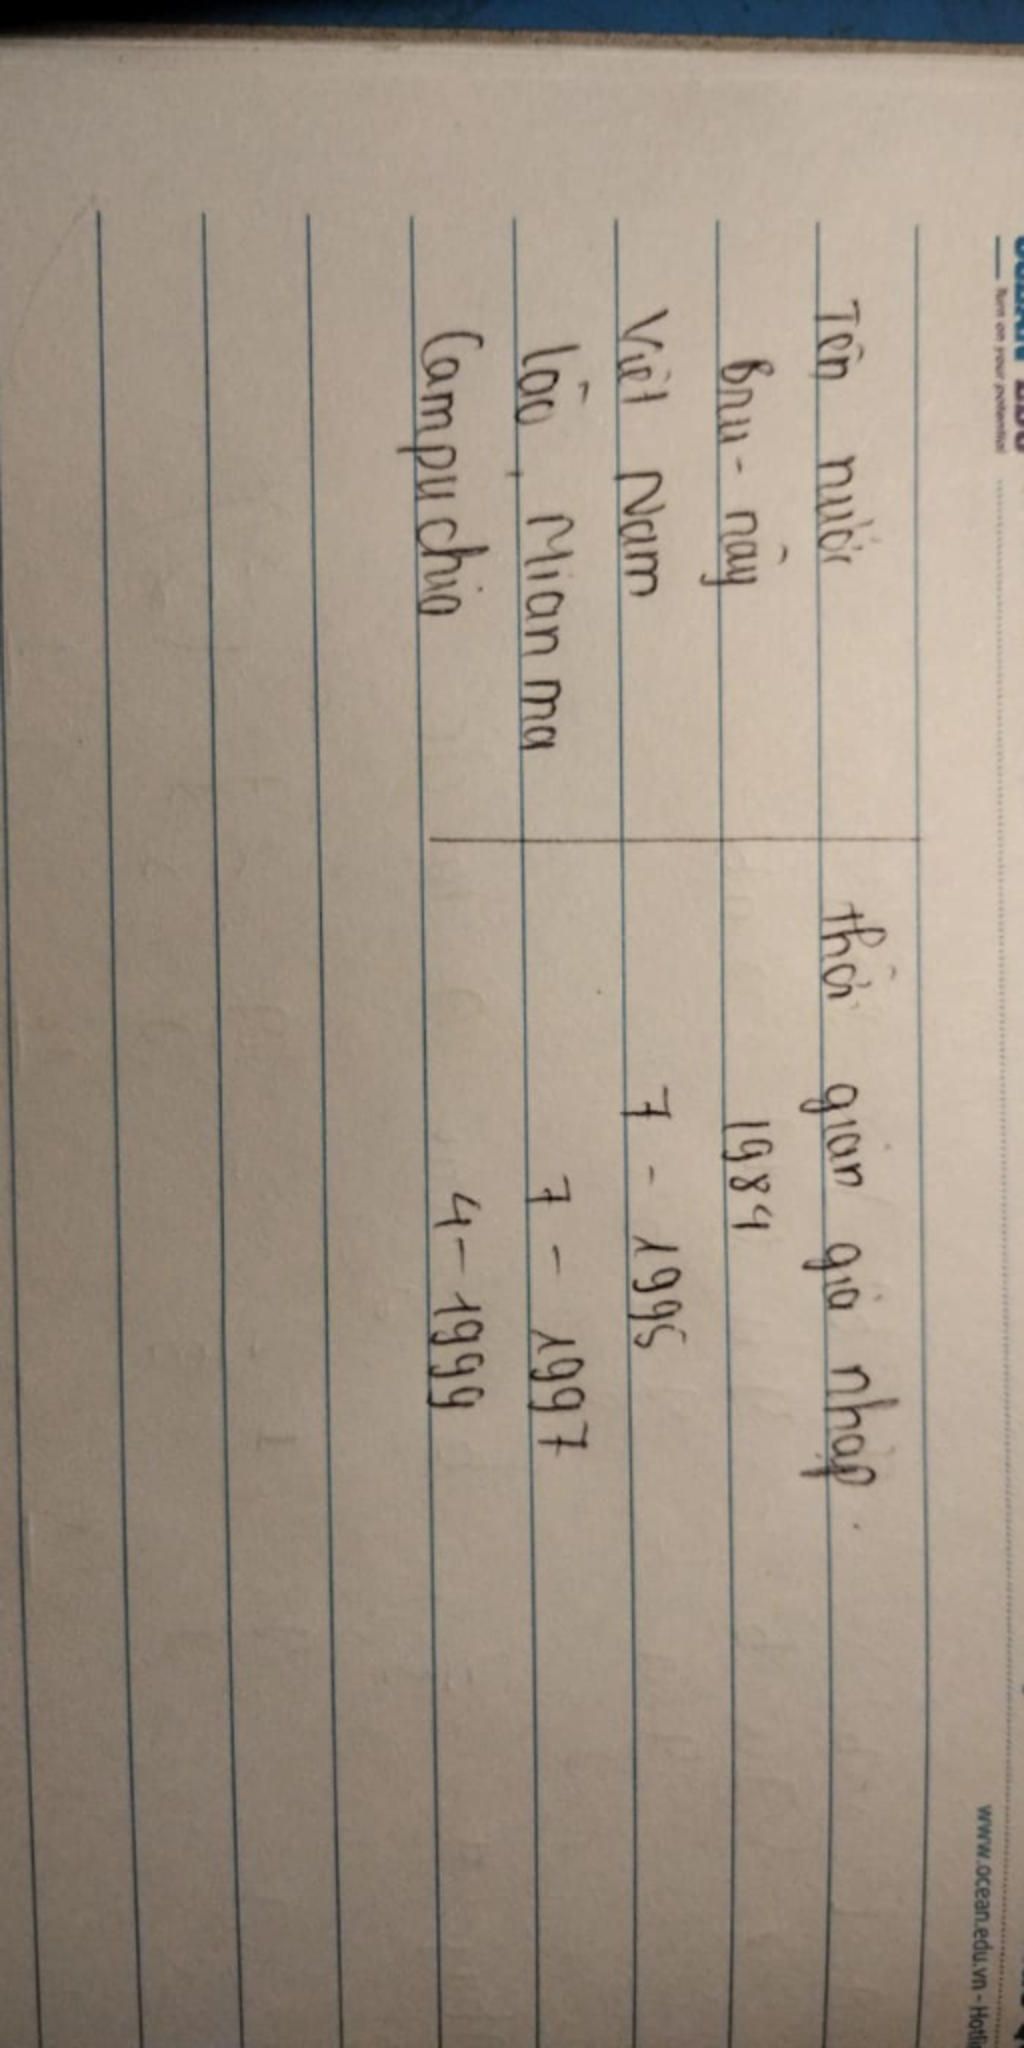 Turn on your potential
www.ocean.edu.vn - Hotli
Tên nước thời gian gia nhập.
Bru-nây 1984
Việt Nam 7 - 1995
Lào, Mianma 7 - 1997
Campuchia 4-1999